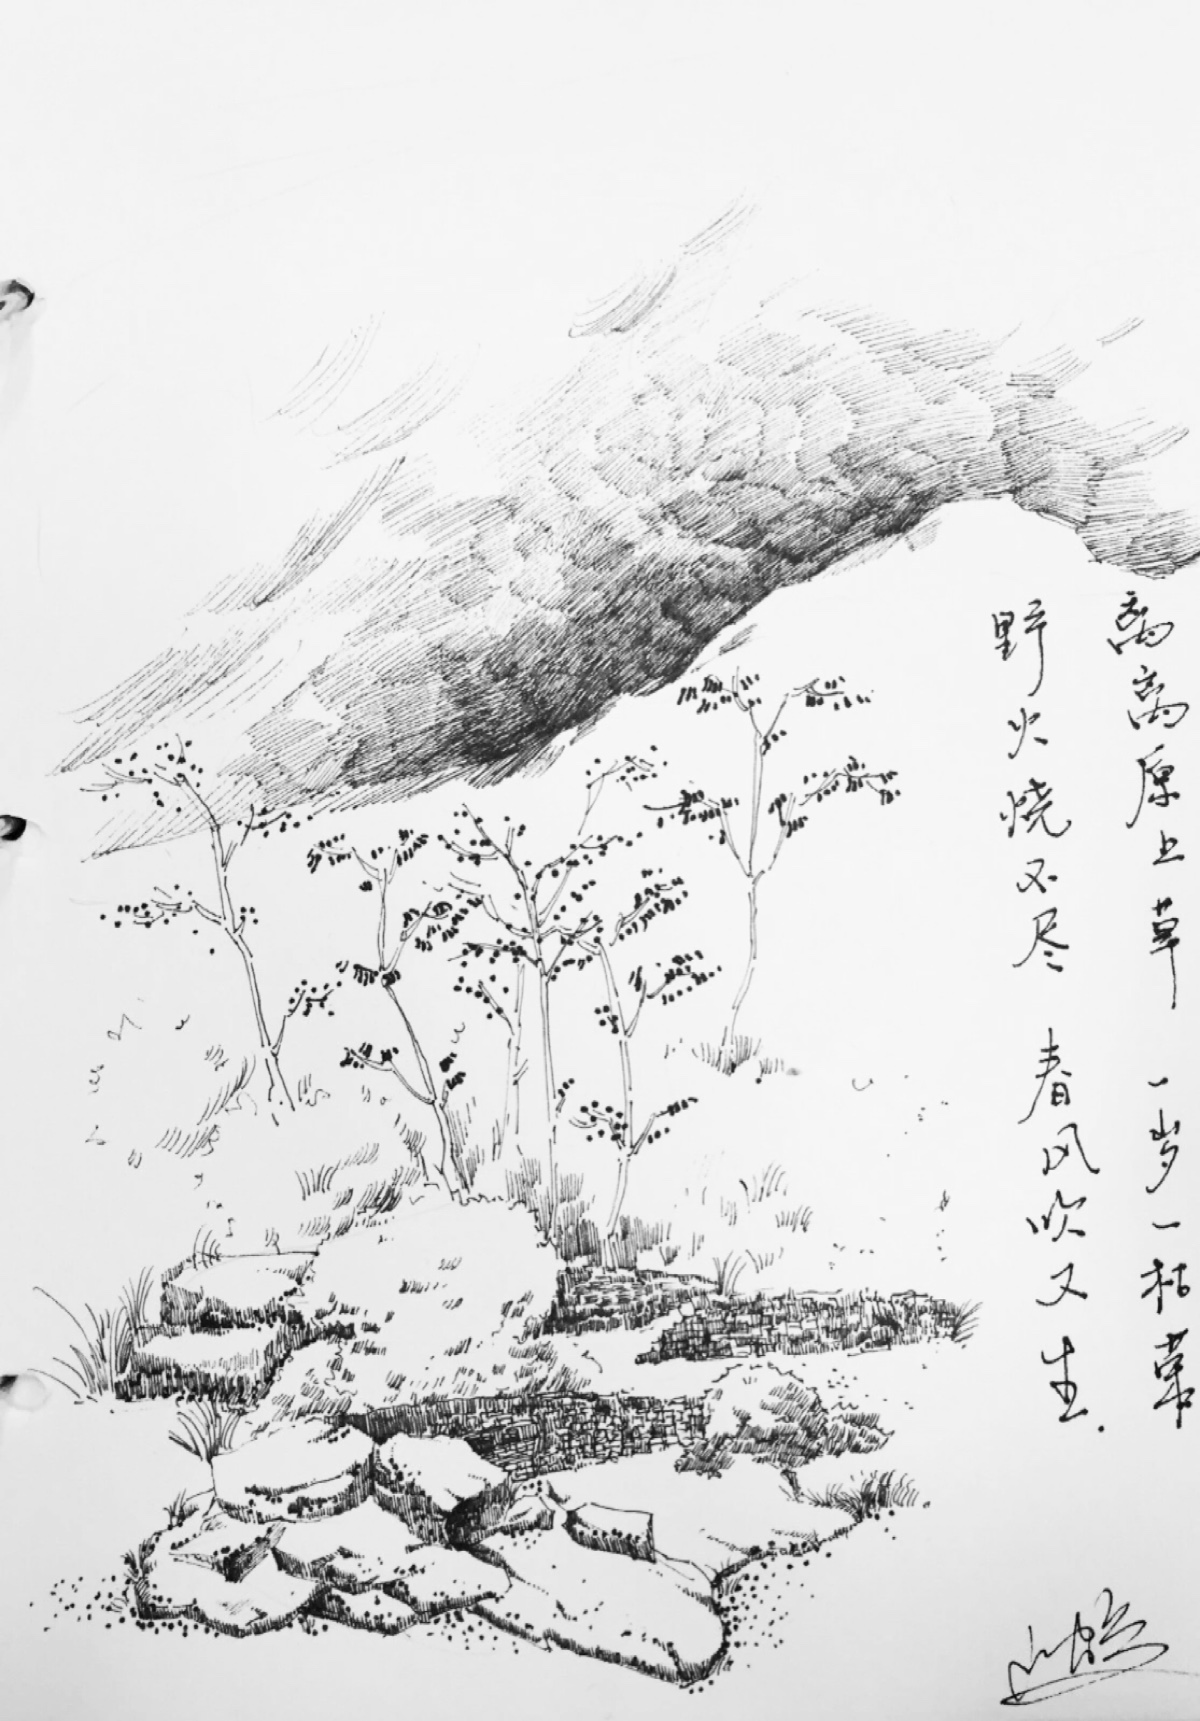 离离原上草 一岁一枯荣
野火烧不尽 春风吹又生.